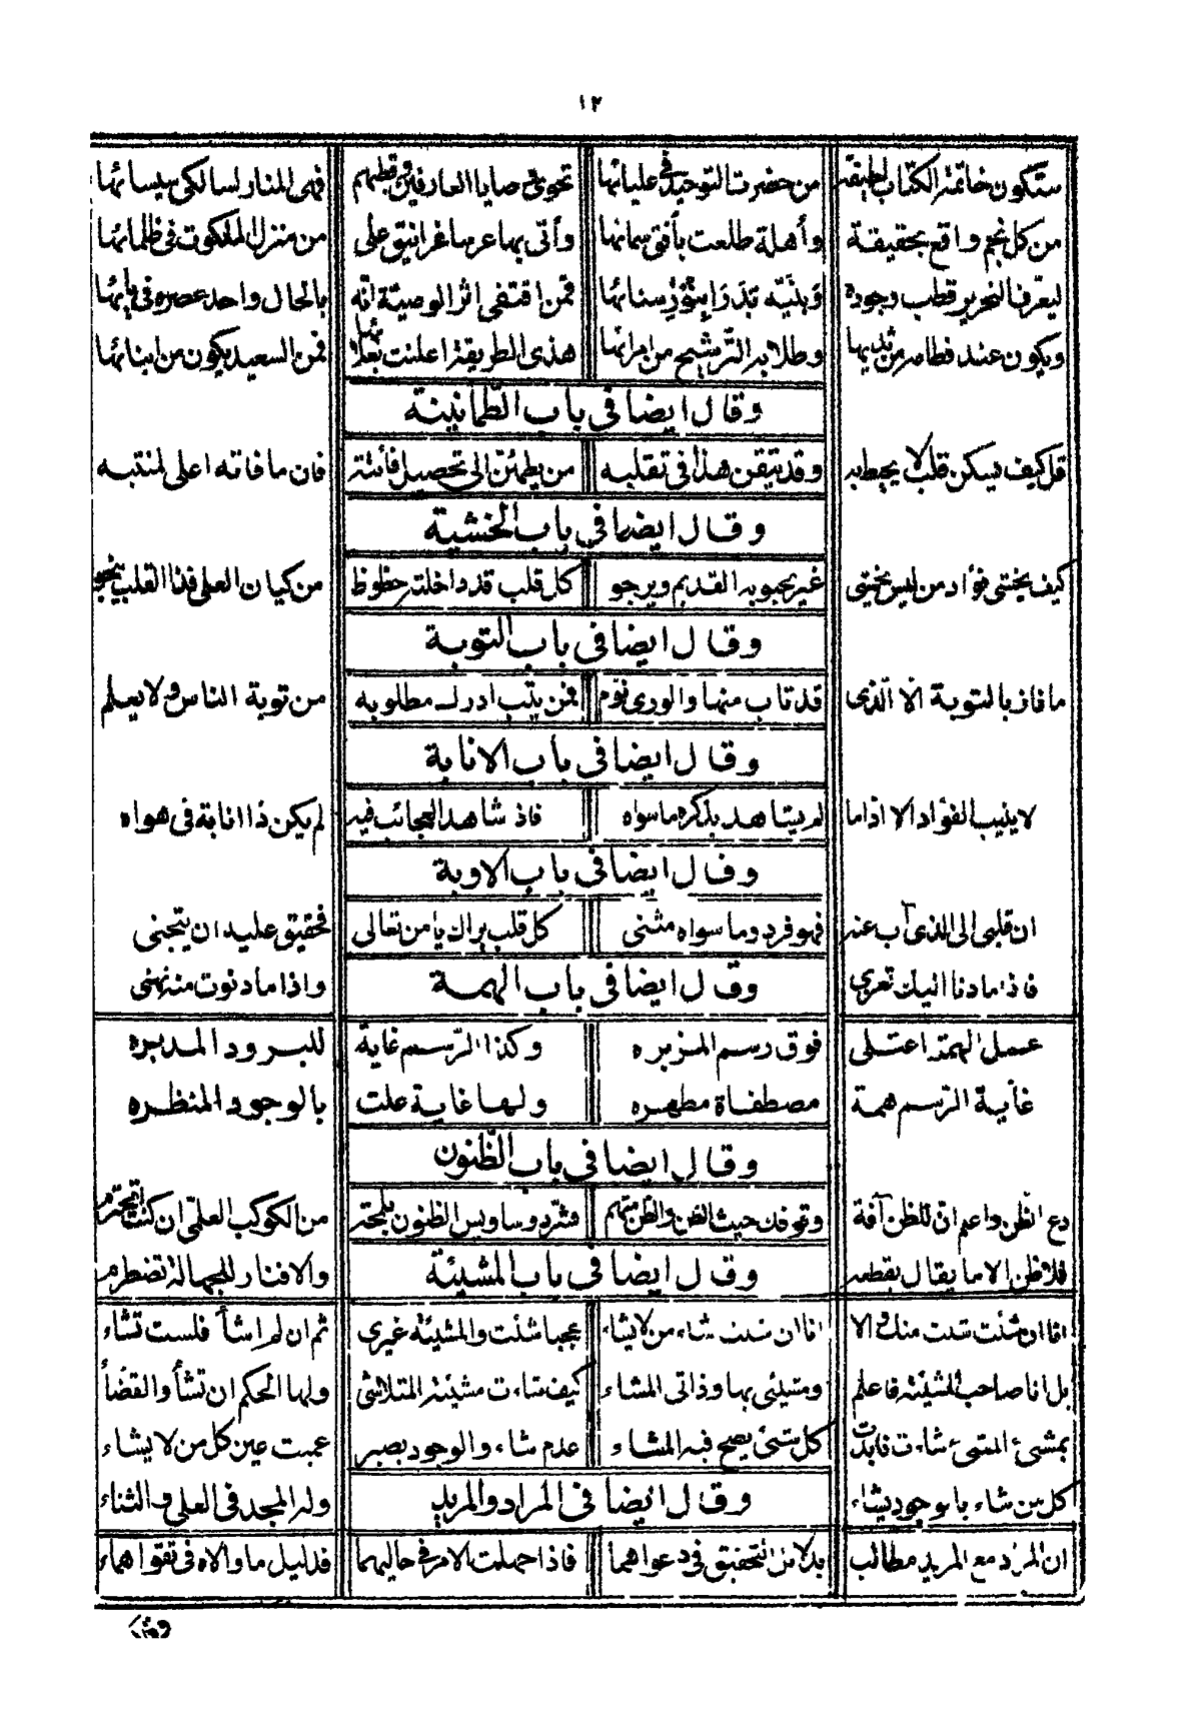 ١٢
ستكون خاتمة الكتاب لطيفة من حضرت التوحيد في عليائها تحوى وصايا العارفين وقطبهم فهى المنار لسالكى سيسائها
من كل نجم واقع بحقيقة وأهلة طلعت بأفق سمائها وأتى بها عرسا غرانيق على من منزل الملكوت في ظلمائها
ليعرف النحرير قطب وجوده وبنيه بدرا بنور سنائها فمن اقتفى اثر الوصية انه بالحال واحد عصره في بابها
ويكون عند فطامه من ثديها وطلابه الترشيح من امرائها هذى الطريقة اعلنت بعلائها فمن السعيد يكون من ابنائها
وقال ايضا فى باب الطمانينة
قل كيف يسكن قلب لا يحيط به وقد تيقن هذا فى تقلبه من يطمئن الى تحصيل فائتة فان ما فاته اعلى لمنتبه
وقال ايضا في باب الخشية
كيف يختشى فؤاد من ليس يختشى غير محبوبه القديم ويرجو كل قلب قد داخلته حظوظ من كيان العلى فذا القلب ينجو
وقال ايضا فى باب التوبة
ما فاز بالتوبة الا الذى قد تاب منها والورى نوم فمن يتب ادرك مطلوبه من توبة الناس ولا يعلم
وقال ايضا فى باب الانابة
لا ينيب الفؤاد الا اذا ما لم يشاهد بذكره ما سواه فاذ شاهد العجائب فيه لم يكن ذا انابة فى هواه
وقال ايضا فى باب الاوبة
ان قلبى الى الذى آب عنه فهو فرد وما سواه مثنى كل قلب يراك يا من تعالى فحقيق عليه ان يتجنى
فاذا ما دنا اليك تعرى واذا ما دنوت منه نهنى
وقال ايضا فى باب الهمة
عمل الهمة اعتلى فوق رسم المزبره وكذا الرسم غاية للبرود المدبره
غاية الرسم همة مصطفاة مطهره ولها غاية علت بالوجود المنظره
وقال ايضا فى باب الظنون
دع الظن واعلم ان للظن آفة وقوفك حيث الظن والظن متهم فشرد وساويس الظنون من الكوكب العلمى ان كنت تحترم
فلا ظن الا ما يقال بقطعه والا فنار للجهالة تضطرم
وقال ايضا فى باب المشيئة
انا ان شئت شئت منك والا انا ان شئت شاء من لا يشاء عجبا شئت والمشيئة غيرى ثم ان لم اشأ فلست تشاء
بل انا صاحب المشيئة فاعلم ومشيئى بها وذاتى المشاء كيف شاءت مشيئة المتلاشى ولها الحكم ان تشأ والقضأ
بمشيئ المشئ شاءت فابدت كل شئ يصح فيه المشاء عدم شاء والوجود بصير عميت عين كل من لا يشاء
كل من شاء بالوجود يشاء وله المجد فى العلى والثناء
وقال ايضا فى المراد والمريد
ان المراد مع المريد مطالب بدلائل التحقيق فى دعواهما فاذا جهلت الامر فى حاليهما فدليل ما والاه فى تقواهما